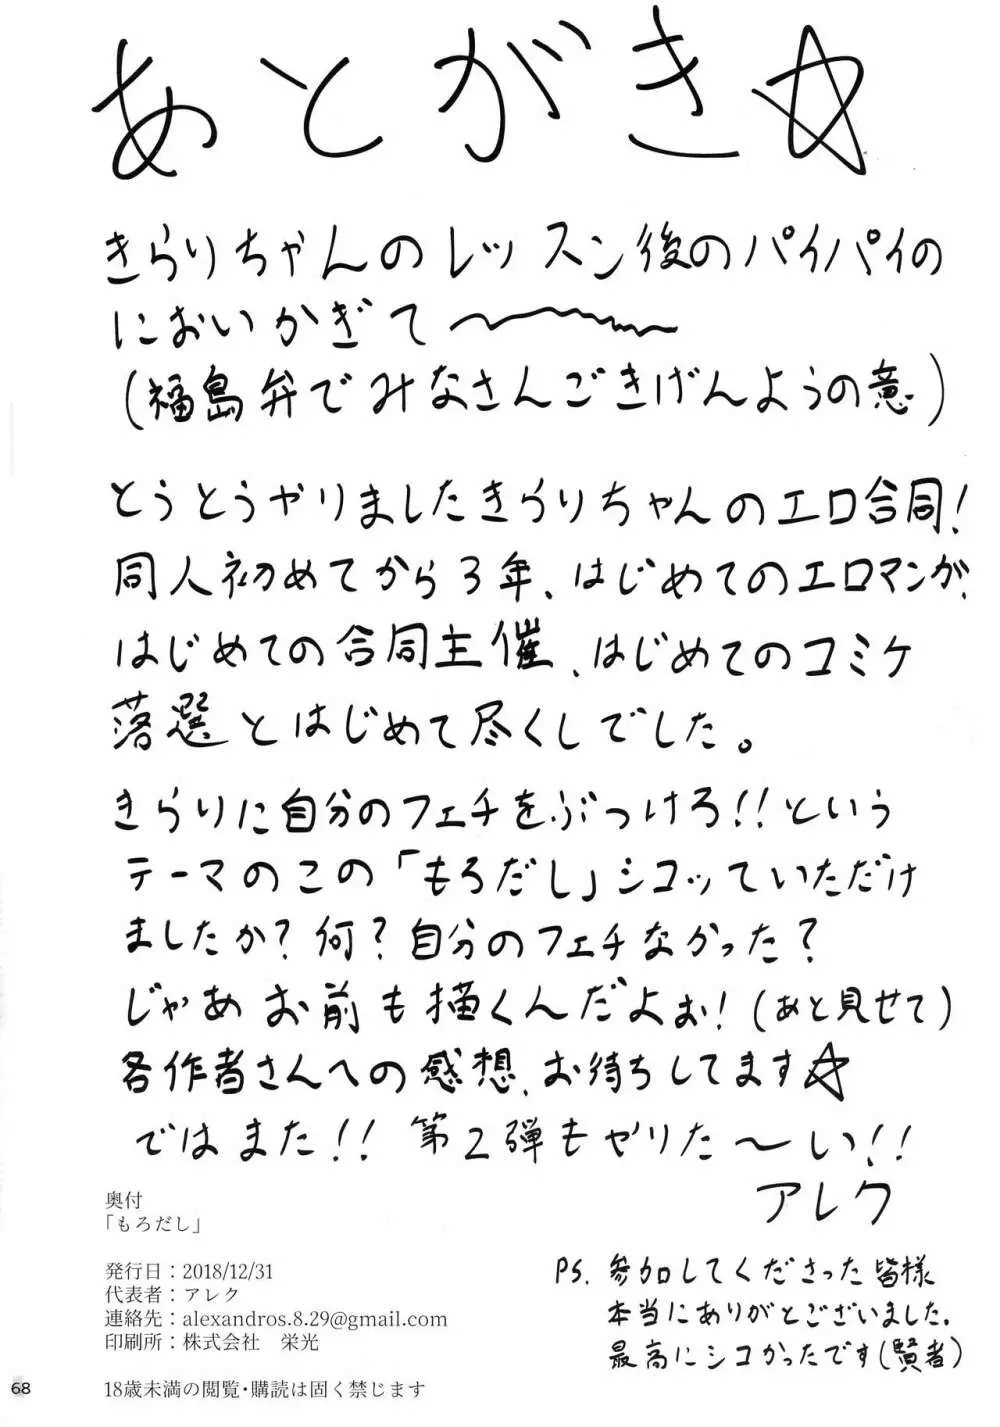 あとがき☆
きらりちゃんのレッスン後のパイパイの
においかぎて〜
(福島弁でみなさんごきげんようの意)
とうとうやりましたきらりちゃんのエロ合同！
同人初めてから3年、はじめてのエロマンガ、
はじめての合同主催、はじめてのコミケ
落選とはじめて尽くしでした。
きらりに自分のフェチをぶつけろ!!という
テーマのこの「もろだし」シコッていただけ
ましたか？何？自分のフェチなかった？
じゃあお前も描くんだよぉ！(あと見せて)
各作者さんへの感想、お待ちしてます☆
ではまた!! 第2弾もやりた〜い!!
アレク
奥付
「もろだし」
発行日：2018/12/31
代表者：アレク
連絡先：alexandros.8.29@gmail.com
印刷所：株式会社　栄光
PS. 参加してくださった皆様
本当にありがとございました。
最高にシコかったです(賢者)
68
18歳未満の閲覧・購読は固く禁じます